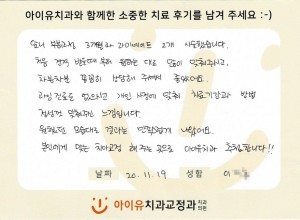 아이유치과와 함께한 소중한 치료 후기를 남겨 주세요 :-)
3개월과 라미네이트 2개 시술했습니다.
처음 견적 받을때 부터 원하는 대로 많이 맞춰주시고,
차근차근 꼼꼼히 상담해 주셔서 좋았어요.
과잉진료도 없으시고 개인 사정에 맞춰 치료기간과 방법
정성껏 맞춰주신 느낌입니다.
원했던 모습대로 결과는 만족스럽게 나왔어요.
본인에게 맞는 치아교정 해 주는 곳으로 아이유치과 추천합니다!!
날짜 20.11.19 성함 이
아이유치과교정과 치과의원